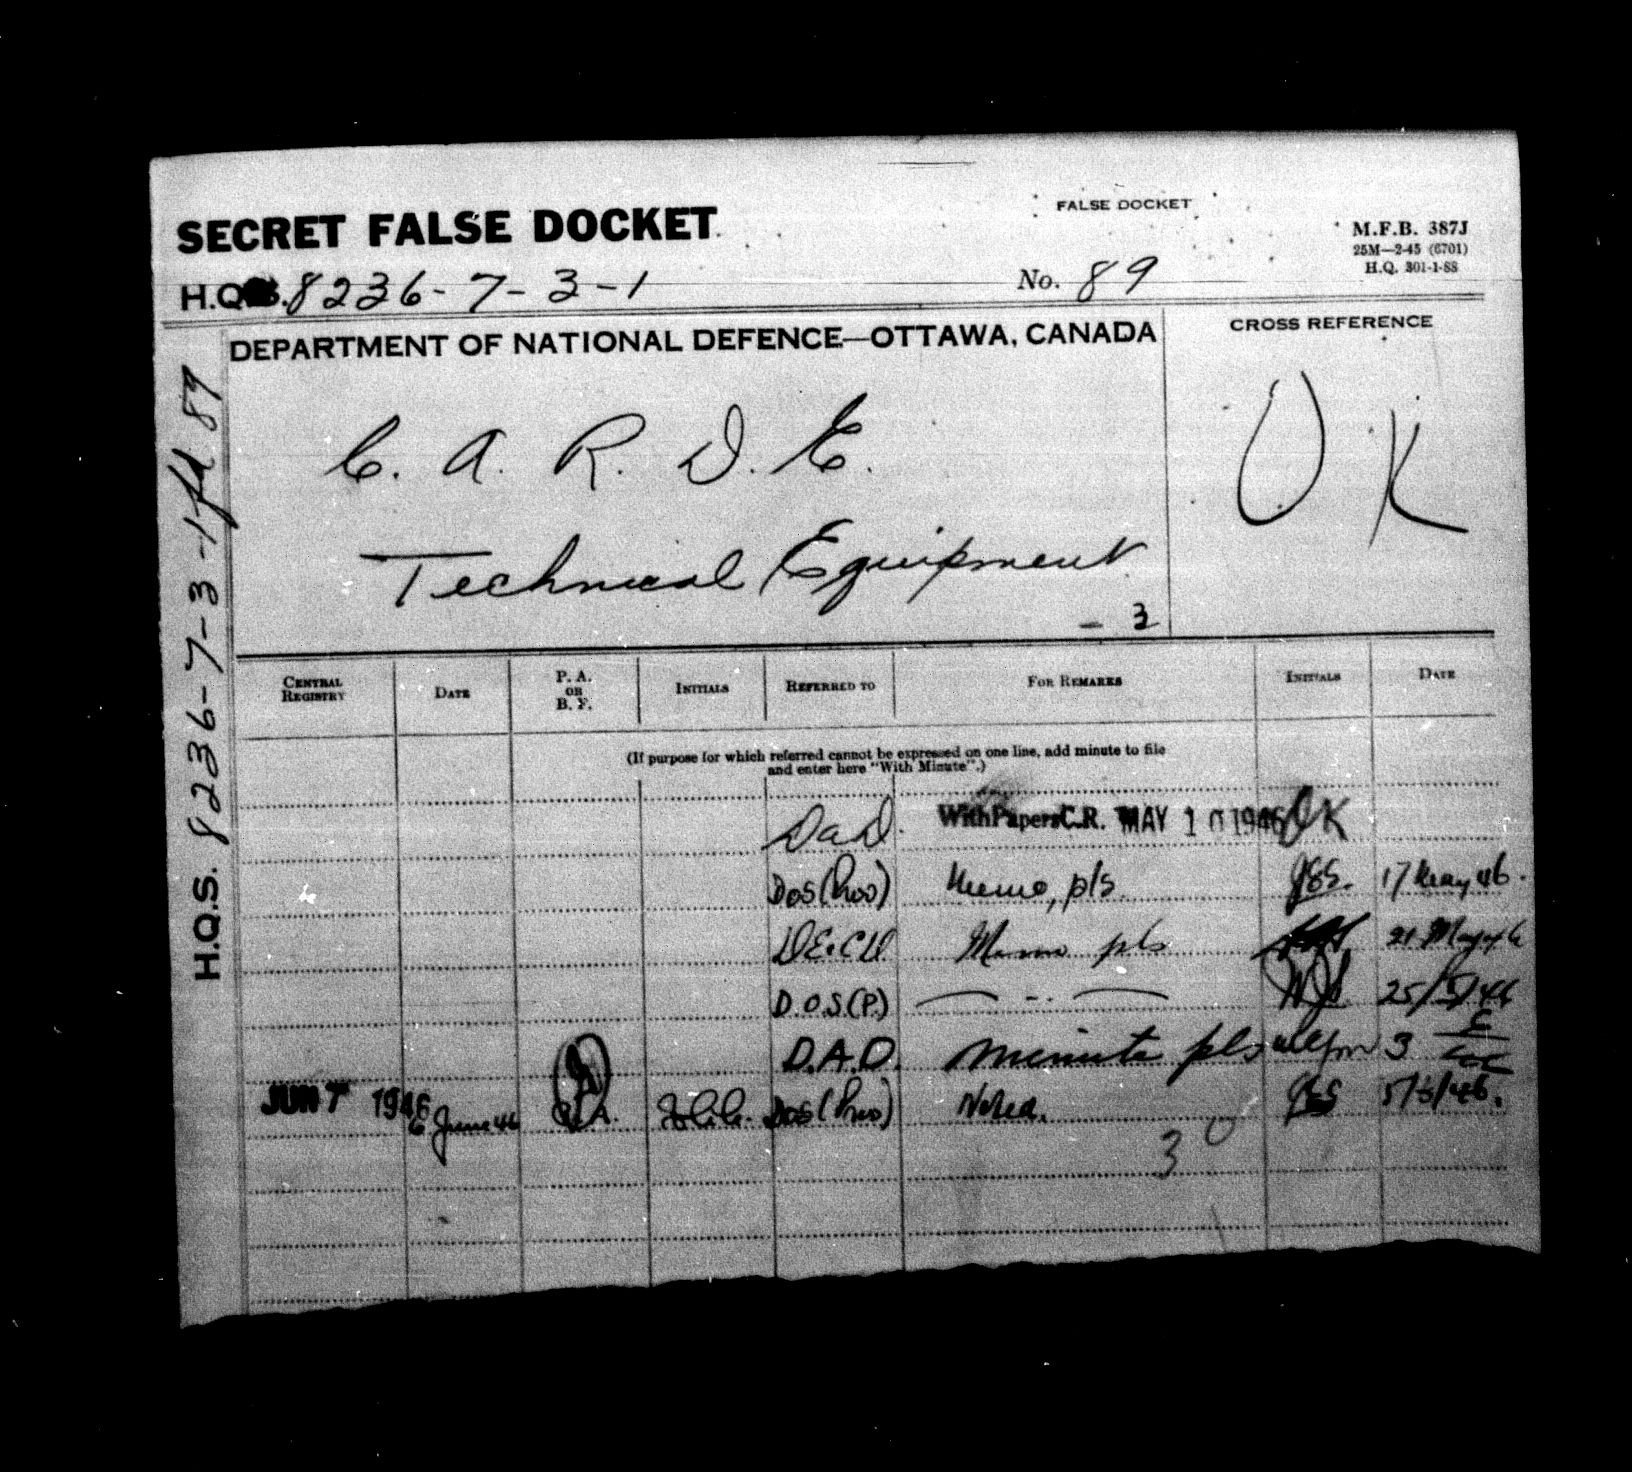 SECRET FALSE DOCKET
FALSE DOCKET
M.F.B. 387J
25M—2-45 (6701)
H.Q. 301-1-88
H.Q.S. 8236-7-3-1
No. 89
DEPARTMENT OF NATIONAL DEFENCE—OTTAWA, CANADA
CROSS REFERENCE
C. A. R. D. E.
OK
Technical Equipment
- 3
H.Q.S. 8236-7-3-1 fd 89
CENTRAL REGISTRY DATE P. A. OR B. F. INITIALS REFERRED TO FOR REMARKS INITIALS DATE
(If purpose for which referred cannot be expressed on one line, add minute to file
and enter here "With Minute".)
DaD. With Papers C.R. MAY 10 1946 OK
DOS (Pros) Memo, pls. 17 May 46.
Memo pls 21 May 46
D.O.S.(P.) — " — 25/5/46
D.A.D. Minute pls 3
JUN 7 1946 6 June 46 P.A. DOS (Pros) Noted. 5/6/46.
3